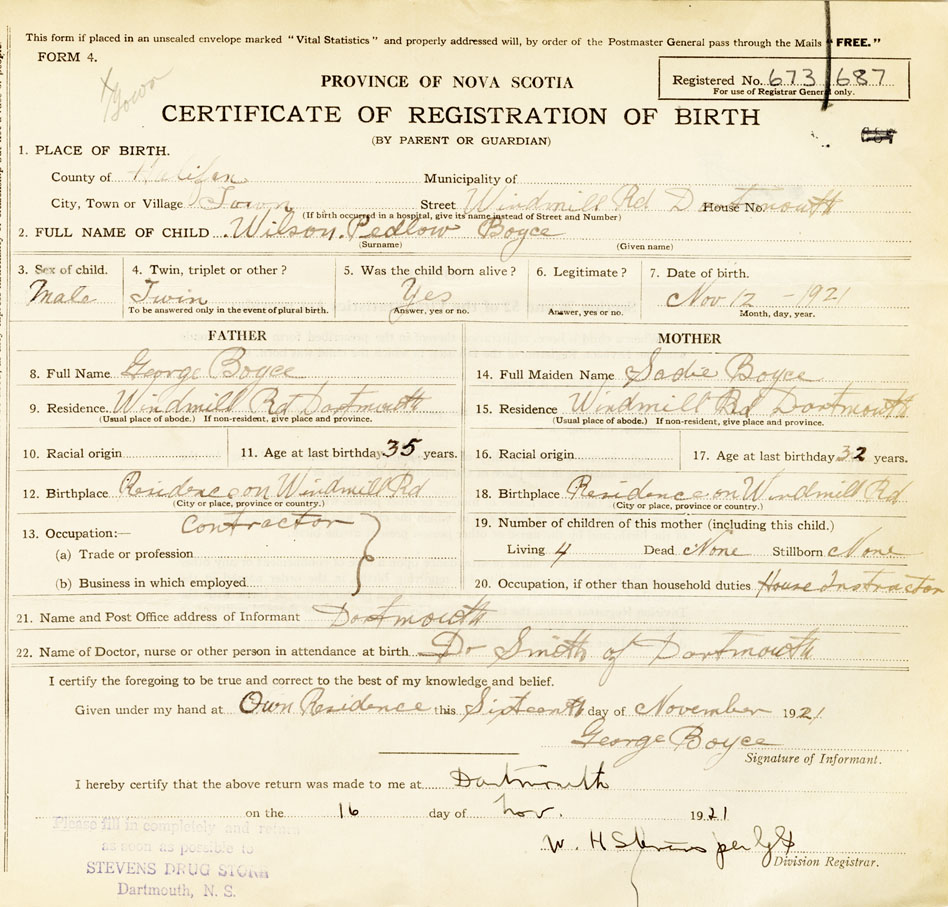 This form if placed in an unsealed envelope marked "Vital Statistics" and properly addressed will, by order of the Postmaster General pass through the Mails "FREE."
FORM 4.
PROVINCE OF NOVA SCOTIA
Registered No. 673 687
For use of Registrar General only.
CERTIFICATE OF REGISTRATION OF BIRTH
(BY PARENT OR GUARDIAN)
1. PLACE OF BIRTH.
County of Halifax Municipality of
City, Town or Village Town Street Windmill Rd Dartmouth House No.
(If birth occurred in a hospital, give its name instead of Street and Number)
2. FULL NAME OF CHILD Wilson Pedlow Boyce
(Surname) (Given name)
3. Sex of child. 4. Twin, triplet or other? 5. Was the child born alive? 6. Legitimate? 7. Date of birth.
Male Twin Yes Nov 12 - 1921
To be answered only in the event of plural birth. Answer, yes or no. Answer, yes or no. Month, day, year.
FATHER MOTHER
8. Full Name George Boyce 14. Full Maiden Name Sadie Boyce
9. Residence. Windmill Rd Dartmouth 15. Residence Windmill Rd Dartmouth
(Usual place of abode.) If non-resident, give place and province. (Usual place of abode.) If non-resident, give place and province.
10. Racial origin 11. Age at last birthday 35 years. 16. Racial origin 17. Age at last birthday 32 years.
12. Birthplace Residence on Windmill Rd 18. Birthplace Residence on Windmill Rd
(City or place, province or country.) (City or place, province or country.)
13. Occupation:— Contractor 19. Number of children of this mother (including this child.)
(a) Trade or profession Living 4 Dead None Stillborn None
(b) Business in which employed 20. Occupation, if other than household duties House Instractor
21. Name and Post Office address of Informant Dartmouth
22. Name of Doctor, nurse or other person in attendance at birth Dr Smith of Dartmouth
I certify the foregoing to be true and correct to the best of my knowledge and belief.
Given under my hand at Own Residence this Sixteenth day of November 1921
George Boyce
Signature of Informant.
I hereby certify that the above return was made to me at Dartmouth
on the 16 day of Nov. 1921
W. H Stevens per
Division Registrar.
Please fill in completely and return
as soon as possible to
STEVENS DRUG STORE
Dartmouth, N. S.